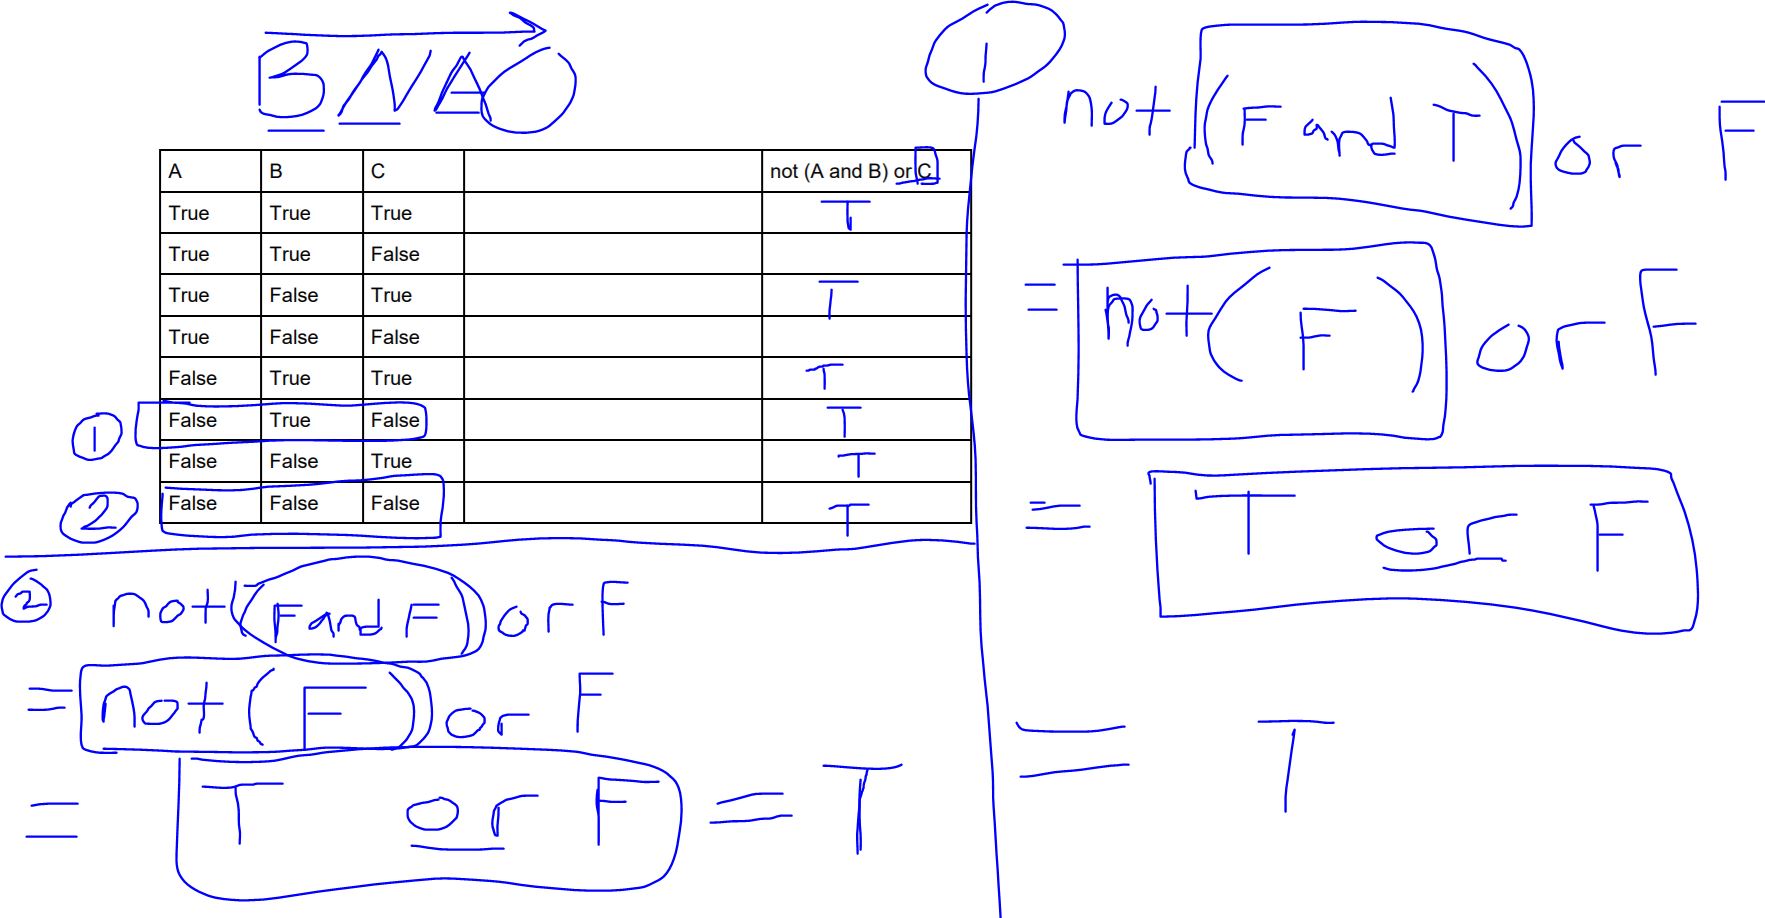 BNAO
A B C not (A and B) or C
True True True T
True True False
True False True T
True False False
False True True T
① False True False T
False False True T
② False False False T
① not (F and T) or F
= not (F) or F
= T or F
= T
② not (F and F) or F
= not (F) or F
= T or F = T